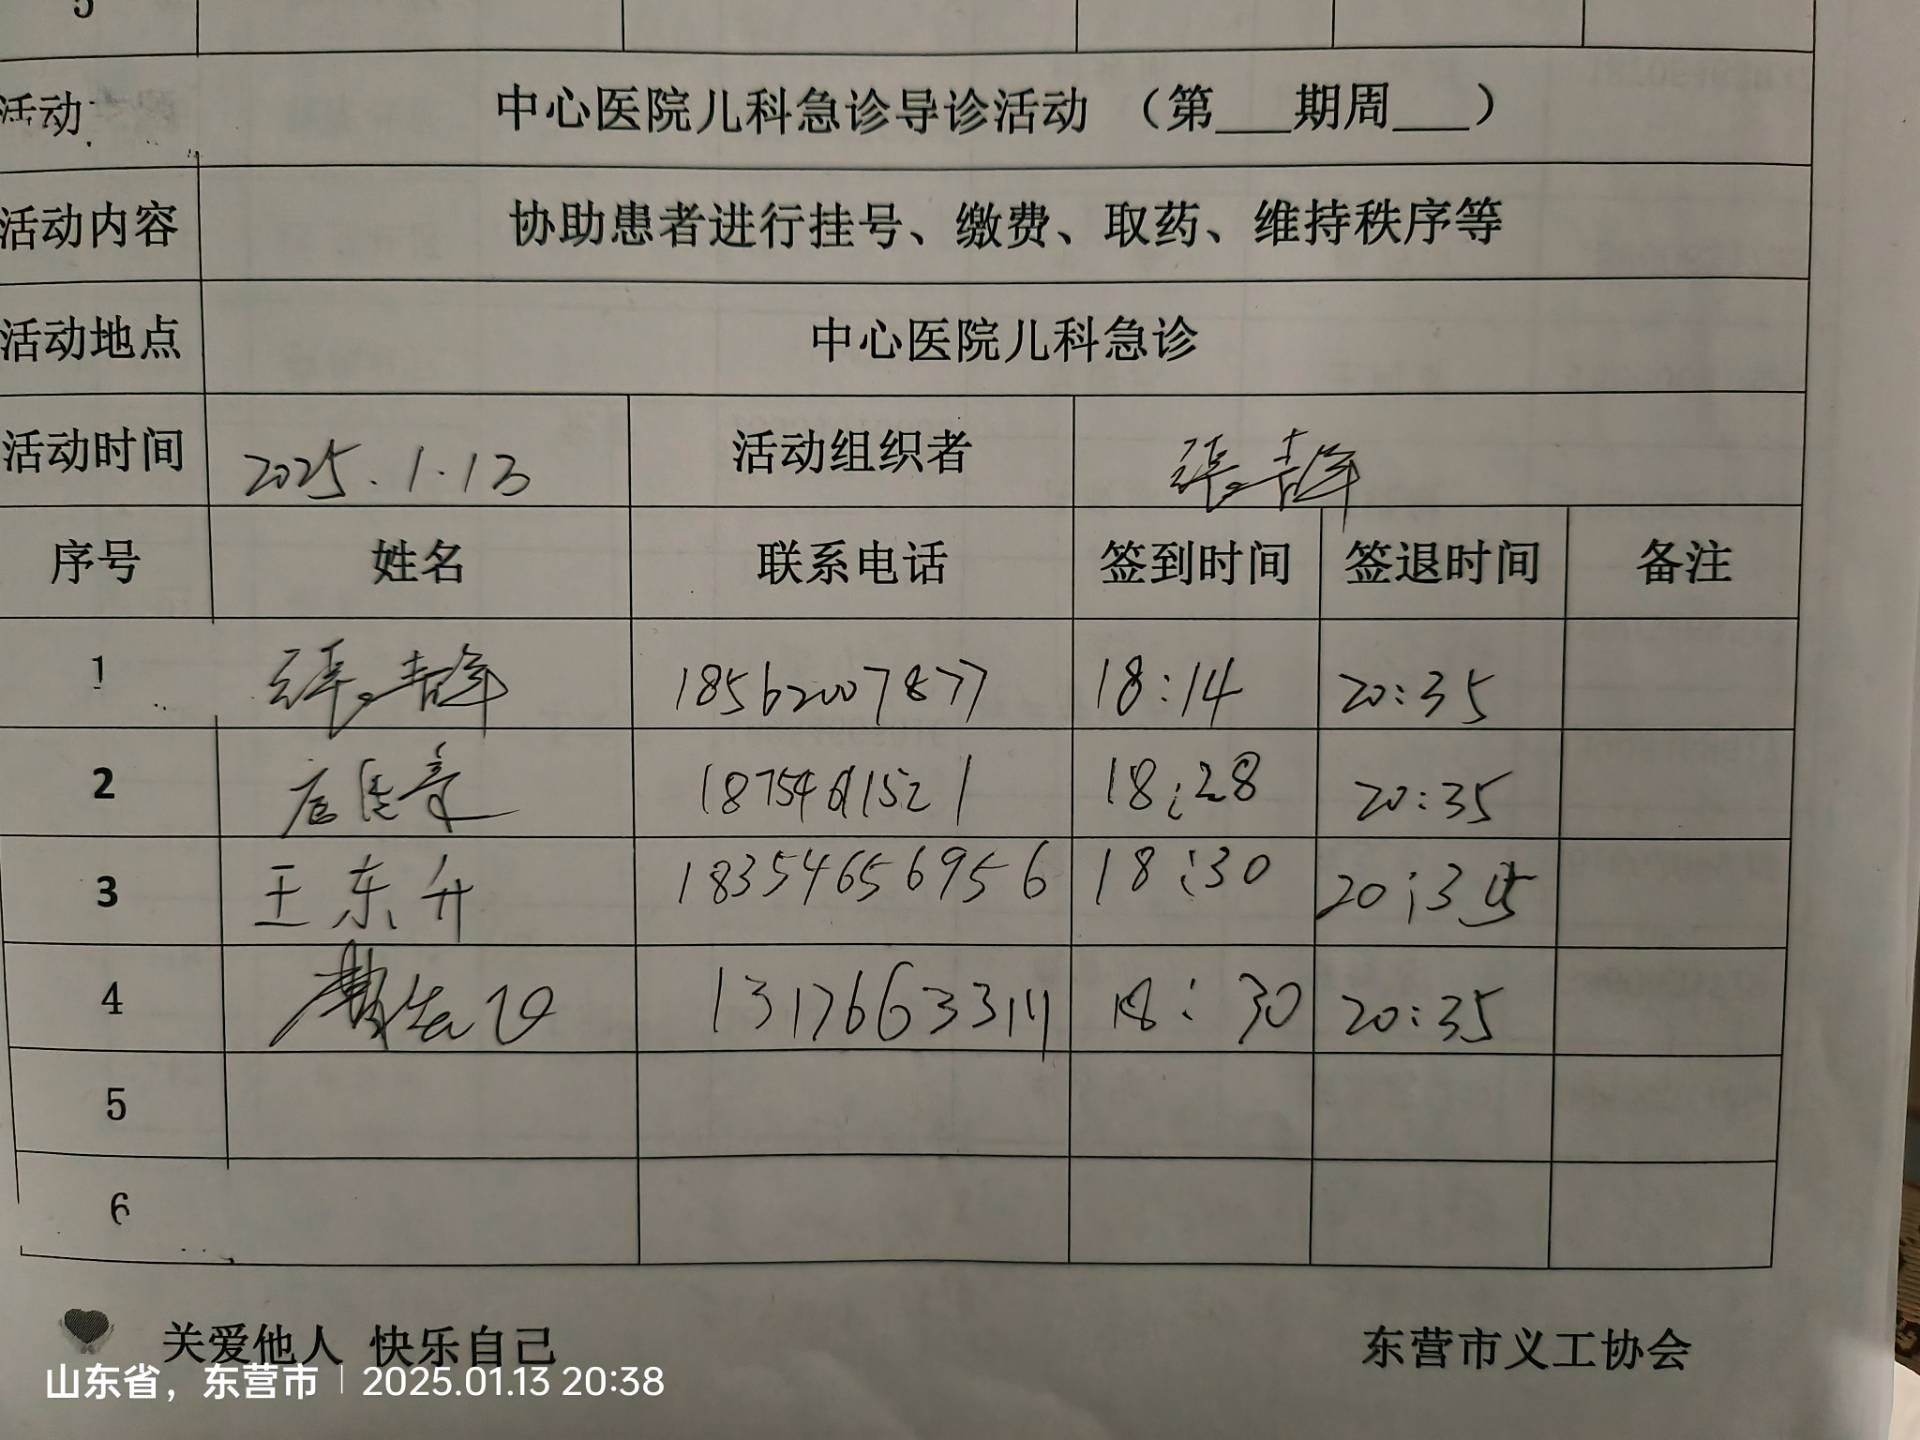 5
活动 中心医院儿科急诊导诊活动 （第___期周___）
活动内容 协助患者进行挂号、缴费、取药、维持秩序等
活动地点 中心医院儿科急诊
活动时间 2025.1.13 活动组织者
序号 姓名 联系电话 签到时间 签退时间 备注
1 18562007877 18:14 20:35
2 18:28 20:35
3 王东升 18354656956 18:30 20:35
4 18:30 20:35
5
6
关爱他人 快乐自己 东营市义工协会
山东省，东营市 | 2025.01.13 20:38